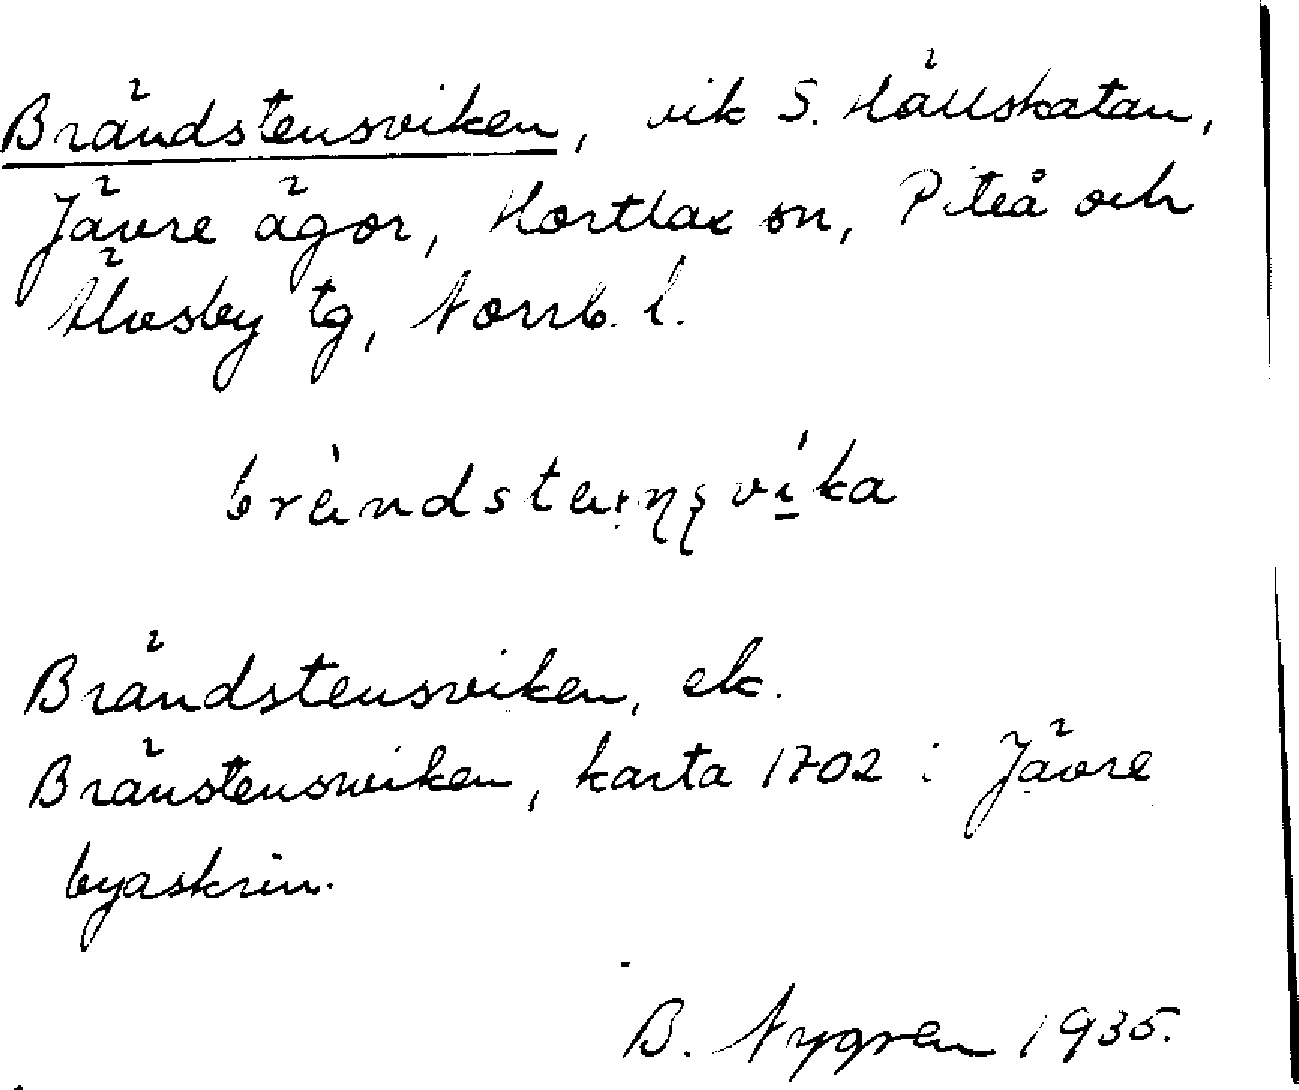 Brändstensviken, vik S. Hällskatan,
Jävre ägor, Hortlax sn, Piteå och
Älvsby tg, Norrb. l.
brändstai̯n̥s̥vì̱ka
Brändstensviken, ek.
Bränstenswiken, karta 1702 i Jävre
byaskrin.
B. Nygren 1935.